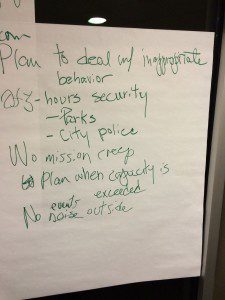 Plan to deal w/ inappropriate
behavior
hours security
- Parks
- City police
No mission creep
Plan when capacity is
exceeded
No events outside